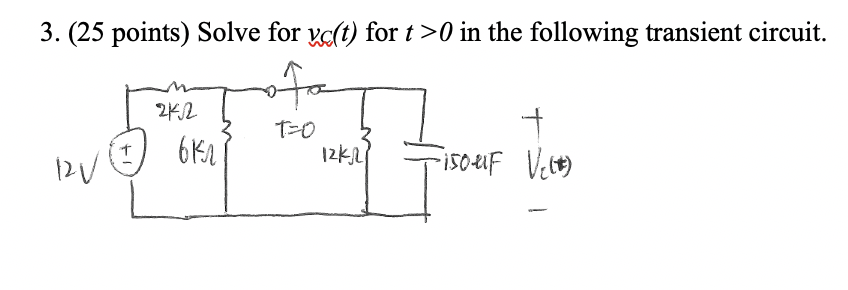 3. (25 points) Solve for vc(t) for t >0 in the following transient circuit.
2KΩ
T=0
6KΩ
12KΩ
12V
+
-
150uF
+
Vc(t)
-